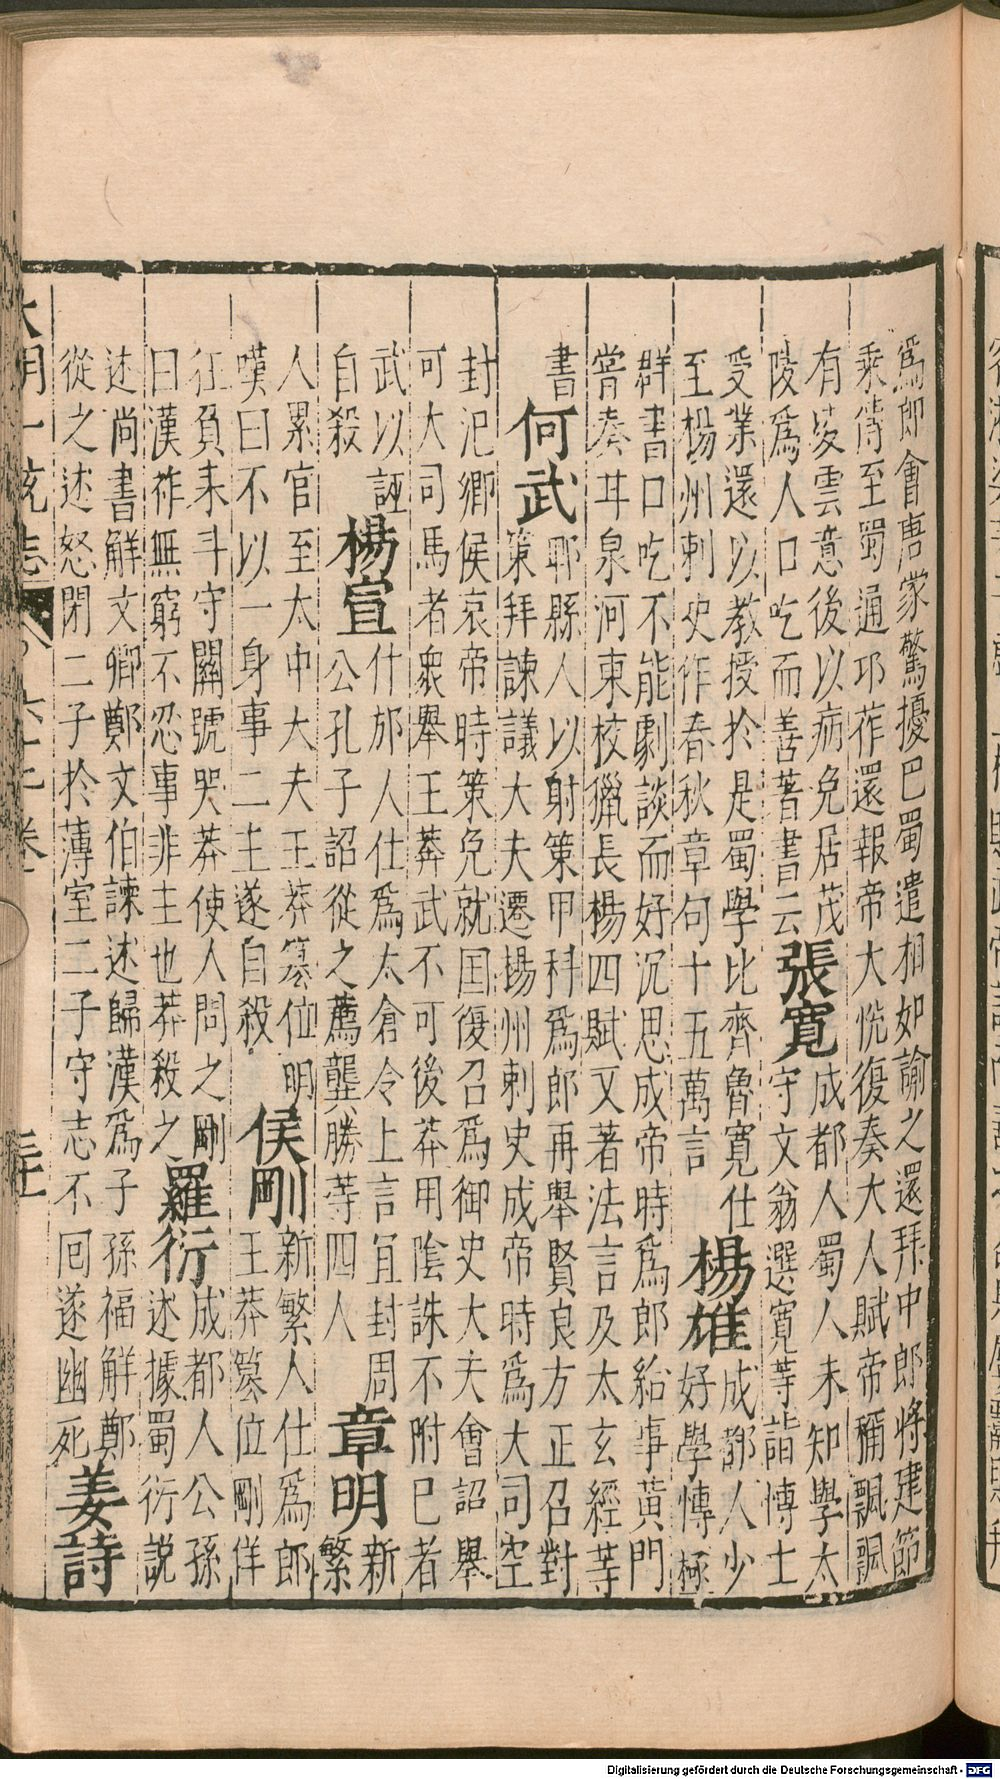 爲郎會唐蒙驚擾巴蜀遣相如諭之還拜中郎將建節
乘傳至蜀通邛莋還報帝大悅復奏大人賦帝稱飄飄
有凌雲意後以病免居茂
陵爲人口吃而善著書云
張寬
成都人蜀人未知學太
守文翁選寬等詣愽士
受業還以教授於是蜀學比齊魯寬仕
至楊州刺史作春秋章句十五萬言
楊雄
成都人少
好學愽極
群書口吃不能劇談而好沉思成帝時爲郎給事黃門
甞奏甘泉河東校獵長楊四賦又著法言及太玄經等
書
何武
郫縣人以射策甲科爲郎再舉賢良方正召對
策拜諫議大夫遷揚州刺史成帝時爲大司空
封氾鄉侯哀帝時策免就国復召爲御史大夫會詔舉
可大司馬者衆舉王莽武不可後莽用陰誅不附已者
武以誣
自殺
楊宣
什邡人仕爲太倉令上言宜封周
公孔子詔從之薦龔勝等四人
章明
新
繁
人累官至太中大夫王莽簒位明
嘆曰不以一身事二主遂自殺
侯剛
新繁人仕爲郎
王莽簒位剛佯
狂負耒斗守闕號哭莽使人問之剛
曰漢祚無窮不忍事非主也莽殺之
羅衍
成都人公孫
述據蜀衍說
述尚書解文卿鄭文伯諫述歸漢爲子孫福解鄭
從之述怒閉二子於薄室二子守志不囘遂幽死
姜詩
大明一統志
六十七卷
三十一
Digitalisierung gefördert durch die Deutsche Forschungsgemeinschaft - DFG